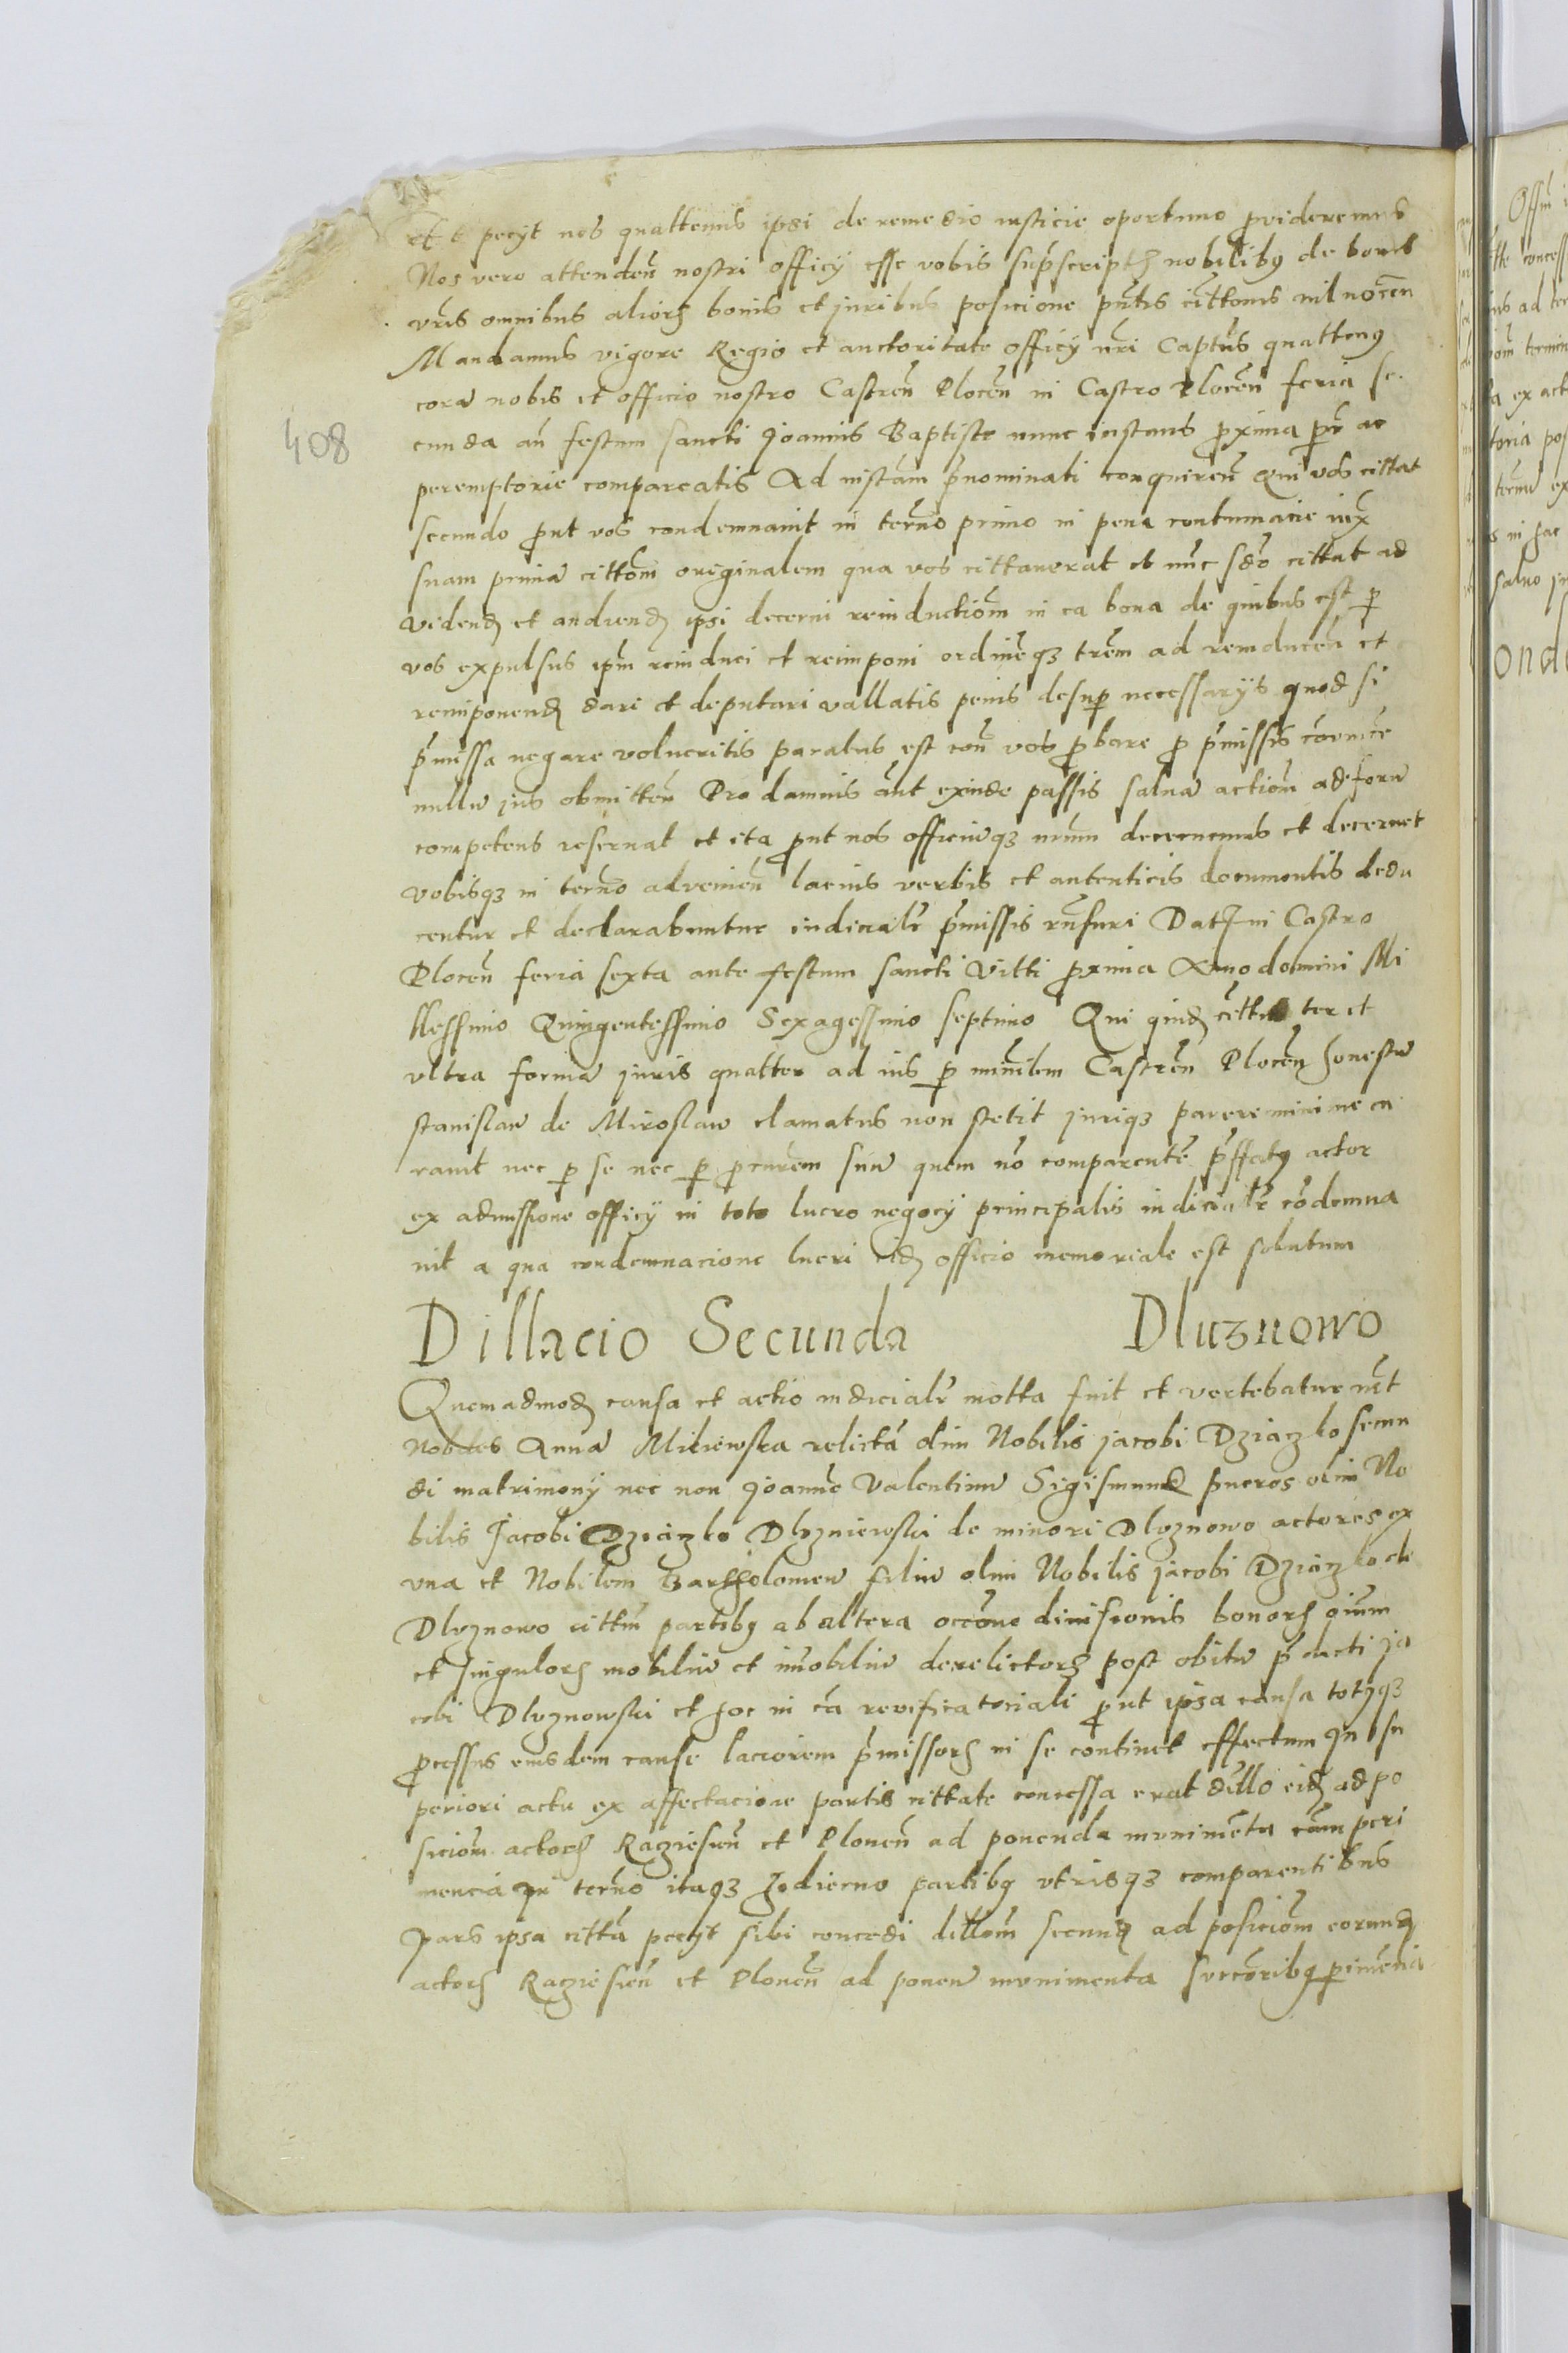 et c pecyt nos quattenus ipsi de remedio iusticie oportuno provideremus
Nos vero attenden nostri officy esse vobis supscriptis nobilibus de bonis
vris omnibus aliorum bonis et juribus posicione pntis cittonis nil nocen
Mandamus vigore Regio et auctoritate officy nri Captus quattenus
cora nobis et officio nostro Castren Plocen in Castro Plocen feria se
cunda an festum sancti Joannis Baptiste nunc instans proxima per ac
peremptorie compareatis Ad instam pnominati conqueren Qui vos cittat
secundo prout vos condemnavit in terno primo in pena contumacie iux
suam prima cittom originalem qua vos cittaverat et nunc sdo cittat ad
videnda et audienda ipsi decerni reinductiom in ea bona de quibus est per
vos expulsus ipm reinduci et reimponi ordineque trem ad reinducen et
reimponendum dari et deputari vallatis penis desup necessarys quod si
pmissa negare volueritis paratus est con vos probare pro pmissis convince
nullu jus obmitten Pro damnis aut exinde passis salva actiom ad foru
competens reservat et ita prout nos officiuque nrum decernemus et decernet
vobisque in terno advenien lacius verbis et autenticis documentis dedu
centur et declarabuntur iudicialr pmissis Dat in Castro
Plocen feria sexta ante festum sancti Vitti proxima Anno domini Mi
llessimo Quingentessimo Sexagessimo septimo Qui quidem citts ter et
ultra forma juris quatter ad ius per minrlem Castren Plocen honestu
stanislau de Miroslaw clamatus non stetit jurique parere minime cu
ravit nec per se nec per procurem suu quem no comparente pffatus actor
ex admissione officy in toto lucro negocy principalis iudicialr codemna
vit a qua condemnacione lucri eidem officio memoriale est solutum
Dillacio Secunda Dluznowo
Quemadmodum causa et actio iudicialr motta fuit et vertebatur int
Nobiles Anna Milewska relicta olim Nobilis jacobi Dziązko secun
di matrimony nec non Joanne Valentinu Sigismund pueros olim No
bilis Jacobi Dziązko Dlvzniewski de minori Dlvznowo actores ex
vna et Nobilem Bartholomeu filiu olim Nobilis jacobi Dziązko de
Dlvznowo cittm partibus ab altera occone divisionis bonorum oium
et singulorum mobiliu et imobiliu derelictorum post obitu pdicti ja
cobi Dlvznowski et hoc in ca prout ipsa causa totusque
processus eiusdem cause laciorem pmissorum in se continet effectum In su
periori actu ex affectacione partis cittate concessa erat dillo eidem ad po
siciom actorum Racziesien et Plonen ad ponenda mvnimenta cam peri
mencia In terno itaque hodierno partibus vtrisque comparentibus
pars ipsa citta pecyt sibi concedi dillom secund ad posiciom eorund
actorum Racziesien et Plonen ad ponen mvnimenta perimencia
408